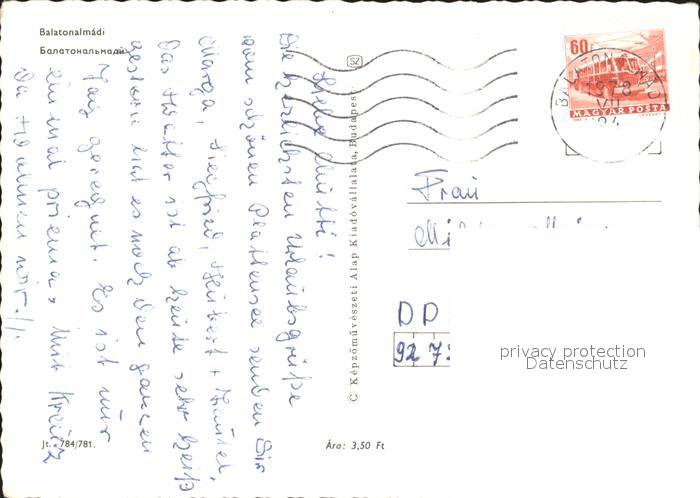 Balatonalmádi
Балатональмади
Liebe Mutti!
Die herzlichsten Urlaubsgrüße
vom schönen Plattensee senden Dir
Marga, Siegfried, Hubert +
Das Wetter ist ab heute sehr heiß
gestern hat es noch den ganzen
Tag geregnet. Es ist nur
einmal prima, Miss
Da wohnen wir.
Jt. 784/781.
Ára: 3,50 Ft
SZ
C Képzőművészeti Alap Kiadóvállalata, Budapest
60f
MAGYAR POSTA
BALATONALMÁDI
1978
VII
24
Frau
DD
92 7
privacy protection
Datenschutz